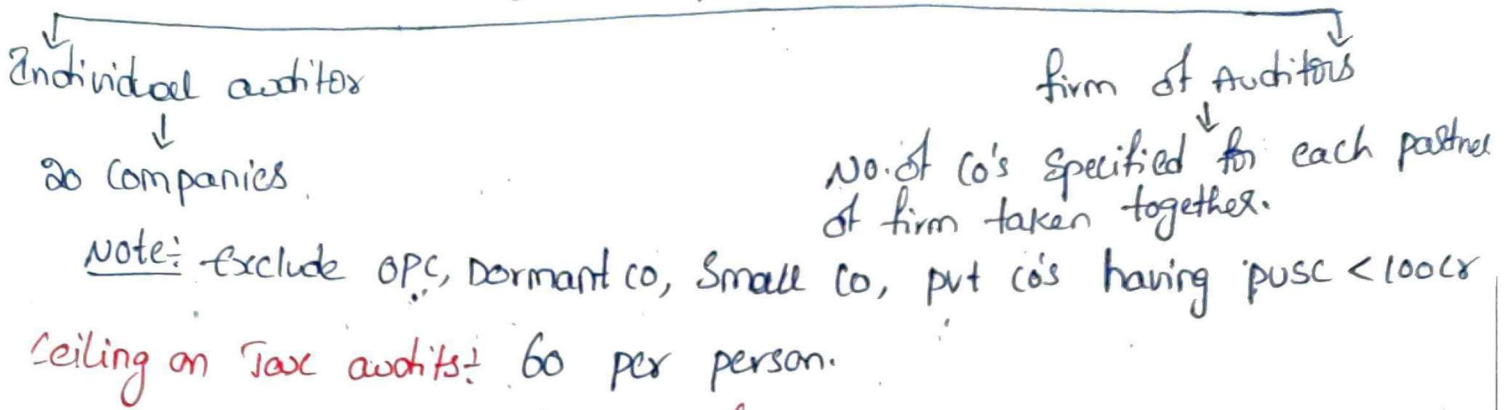 Individual auditor
firm of Auditors
20 Companies.
No. of Co's Specified for each partner
of firm taken together.
Note:- Exclude OPC, Dormant co, Small Co, pvt co's having pusc < 100cr
Ceiling on Tax audits:- 60 per person.